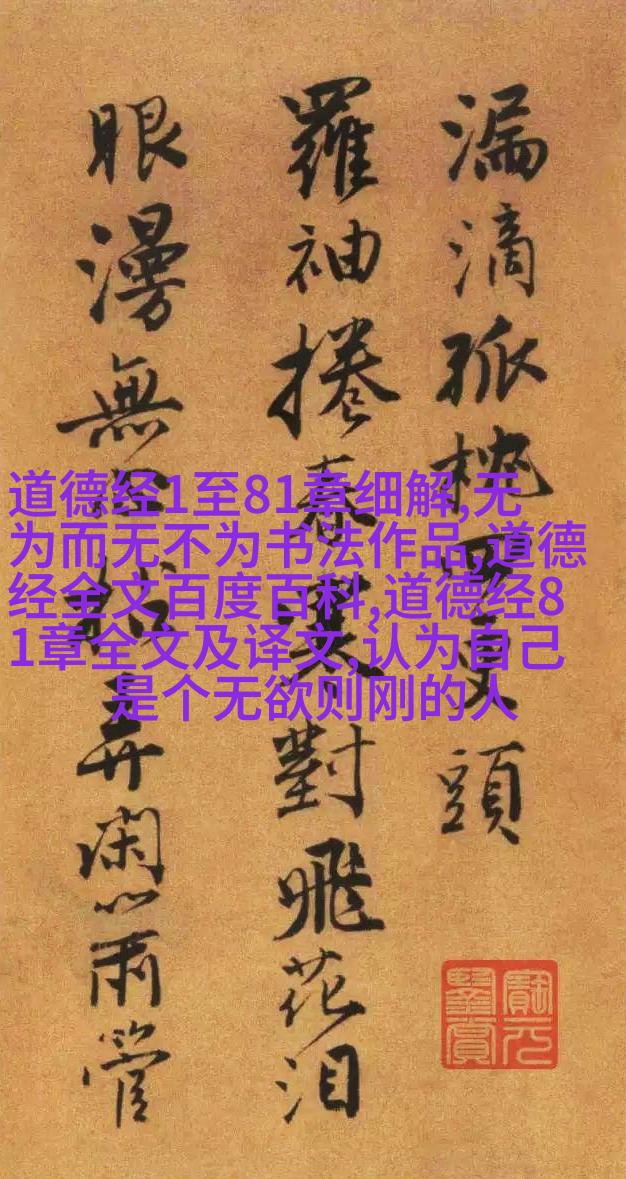 漏滴孤枕更頭
羅袖捲春對飛花泪
眼漫無弄閑心兩管
道德经1至81章细解,无
为而无不为书法作品,道德
经全文百度百科,道德经8
1章全文及译文,认为自己
是个无欲则刚的人